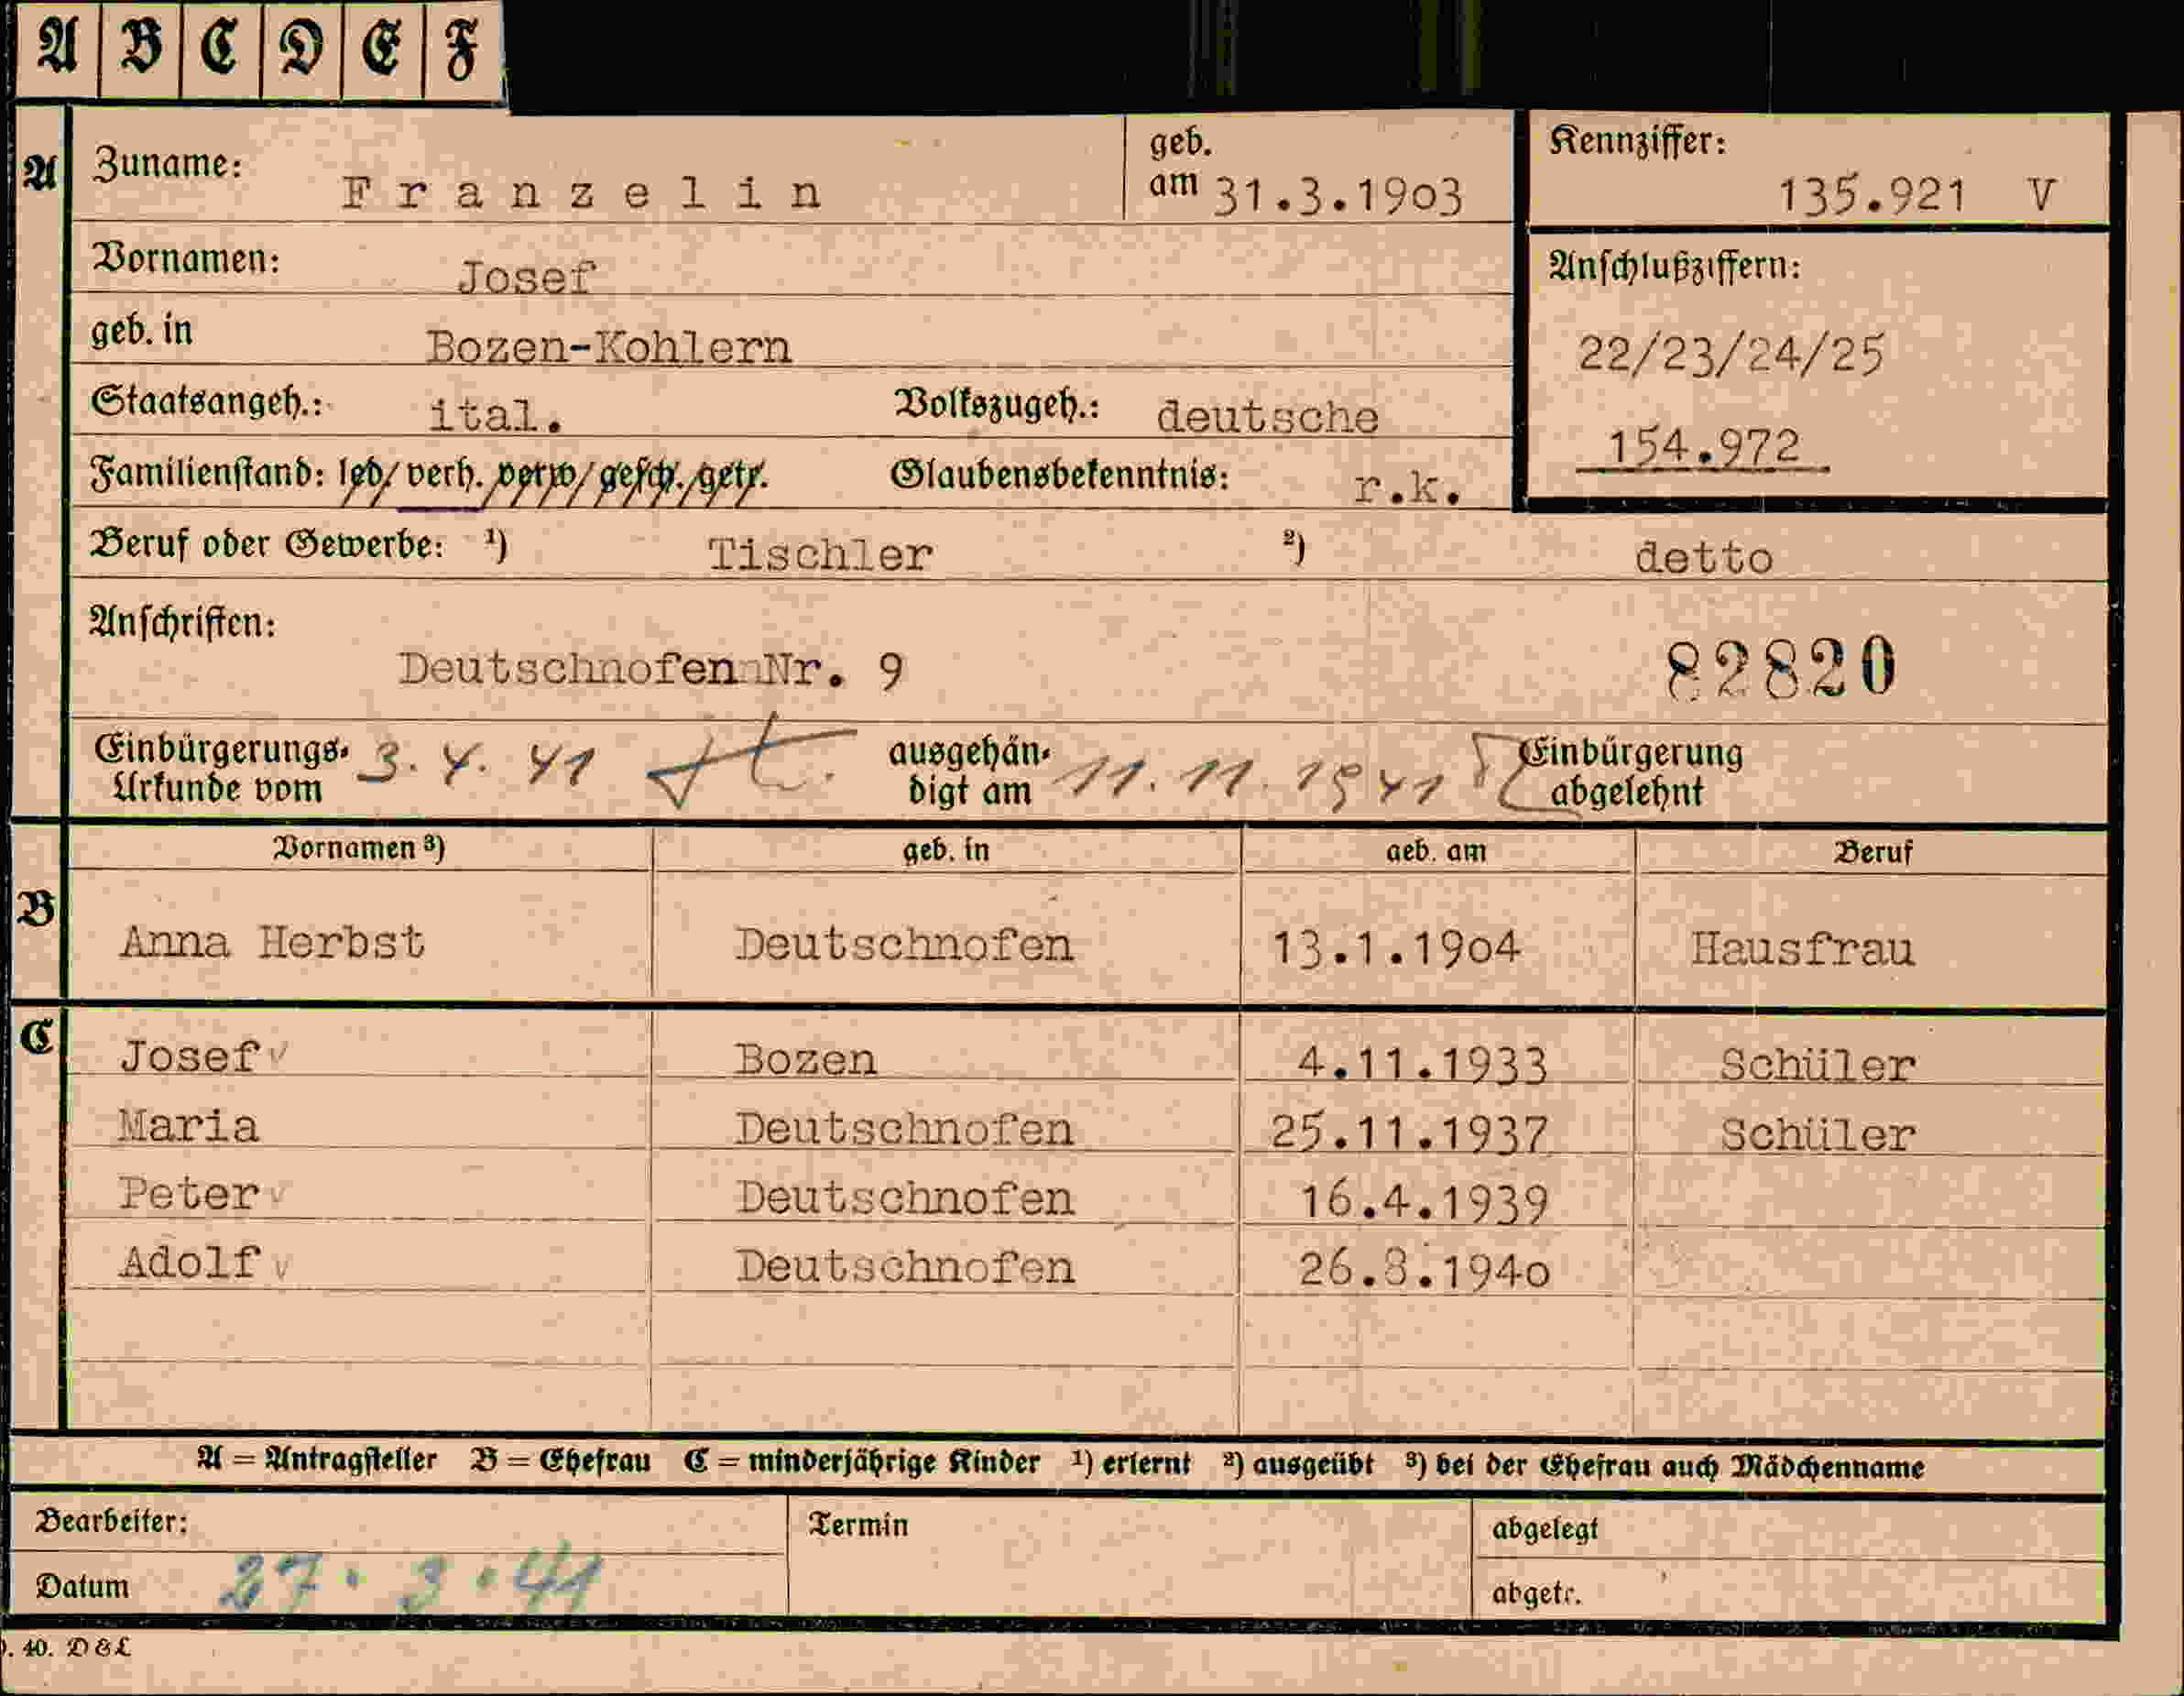 A B C D E F
A Zuname: Franzelin geb. am 31.3.1903 Kennziffer: 135.921 V
Vornamen: Josef Anschlußziffern:
geb. in Bozen-Kohlern 22/23/24/25
Staatsangeh.: ital. Volkszugeh.: deutsche 154.972
Familienstand: led/verh. verw/gesch./getr. Glaubensbekenntnis: r.k.
Beruf oder Gewerbe: ¹) Tischler ²) detto
Anschriften:
Deutschnofen Nr. 9 82820
Einbürgerungs-Urkunde vom 3. 4. 41 ausgehän-digt am 11. 11. 1941 Einbürgerung abgelehnt
Vornamen ³) geb. in geb. am Beruf
B Anna Herbst Deutschnofen 13.1.1904 Hausfrau
C Josef Bozen 4.11.1933 Schüler
Maria Deutschnofen 25.11.1937 Schüler
Peter Deutschnofen 16.4.1939
Adolf Deutschnofen 26.8.1940
A = Antragsteller B = Ehefrau C = minderjährige Kinder ¹) erlernt ²) ausgeübt ³) bei der Ehefrau auch Mädchenname
Bearbeiter: Termin abgelegt
Datum 27. 3. 41 abgetr.
. 40. D & L